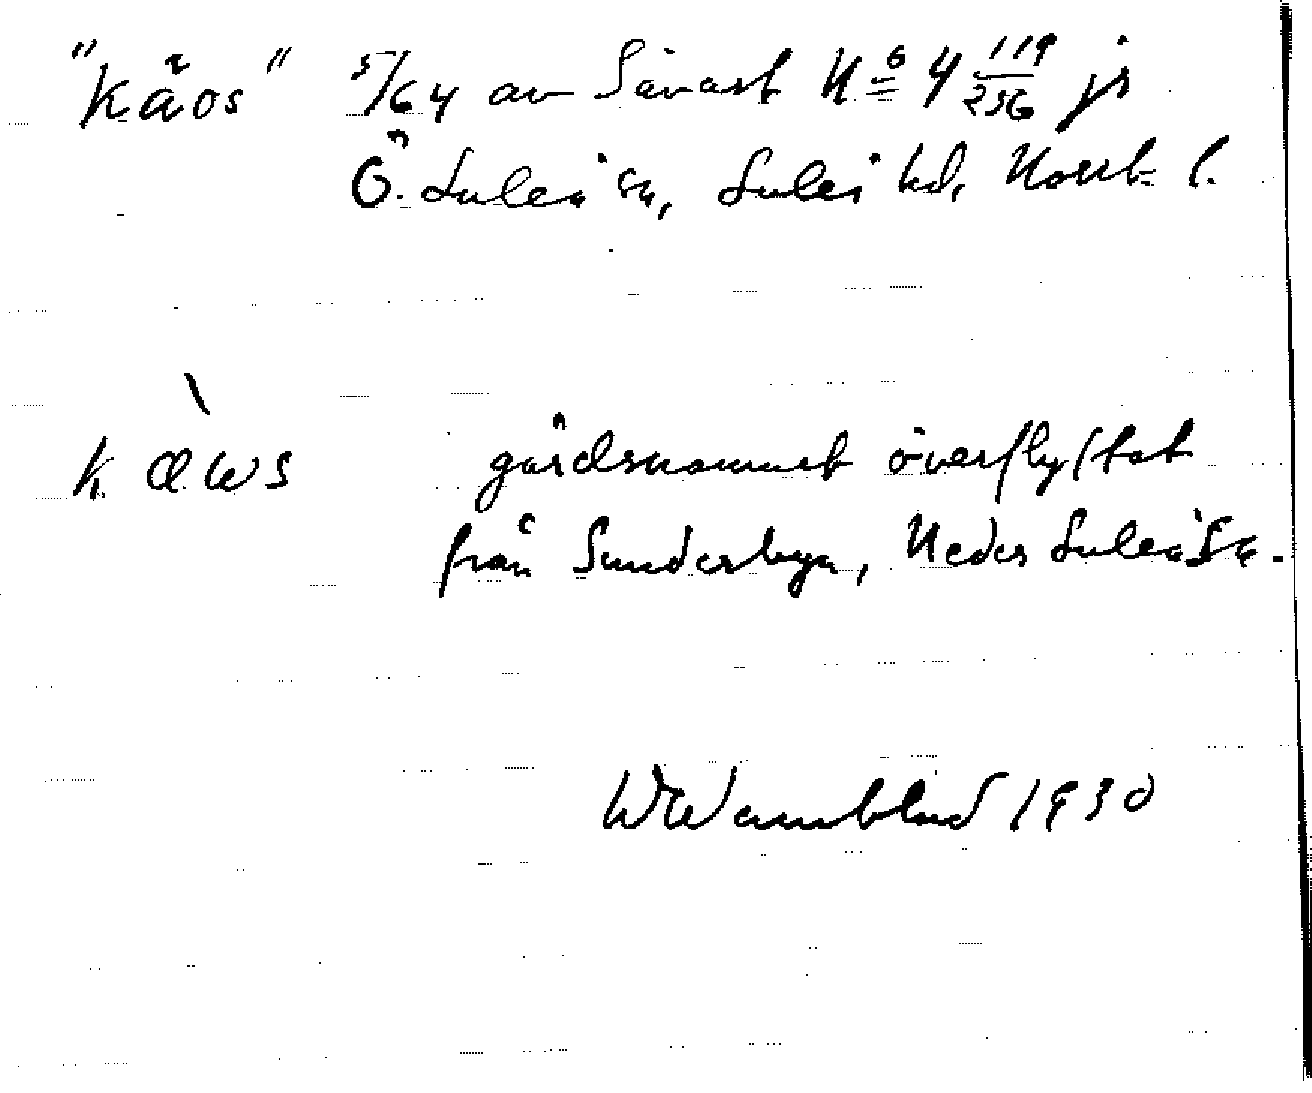 "Kåos" 5/64 av Sävast No 4 119/256 js
Ö. Luleå sn, Luleå hd, Norrb. l.
kaws gårdsnamnet överflyttat
från Sunderbyn, Neder Luleå sn.
W Wannblad 1930